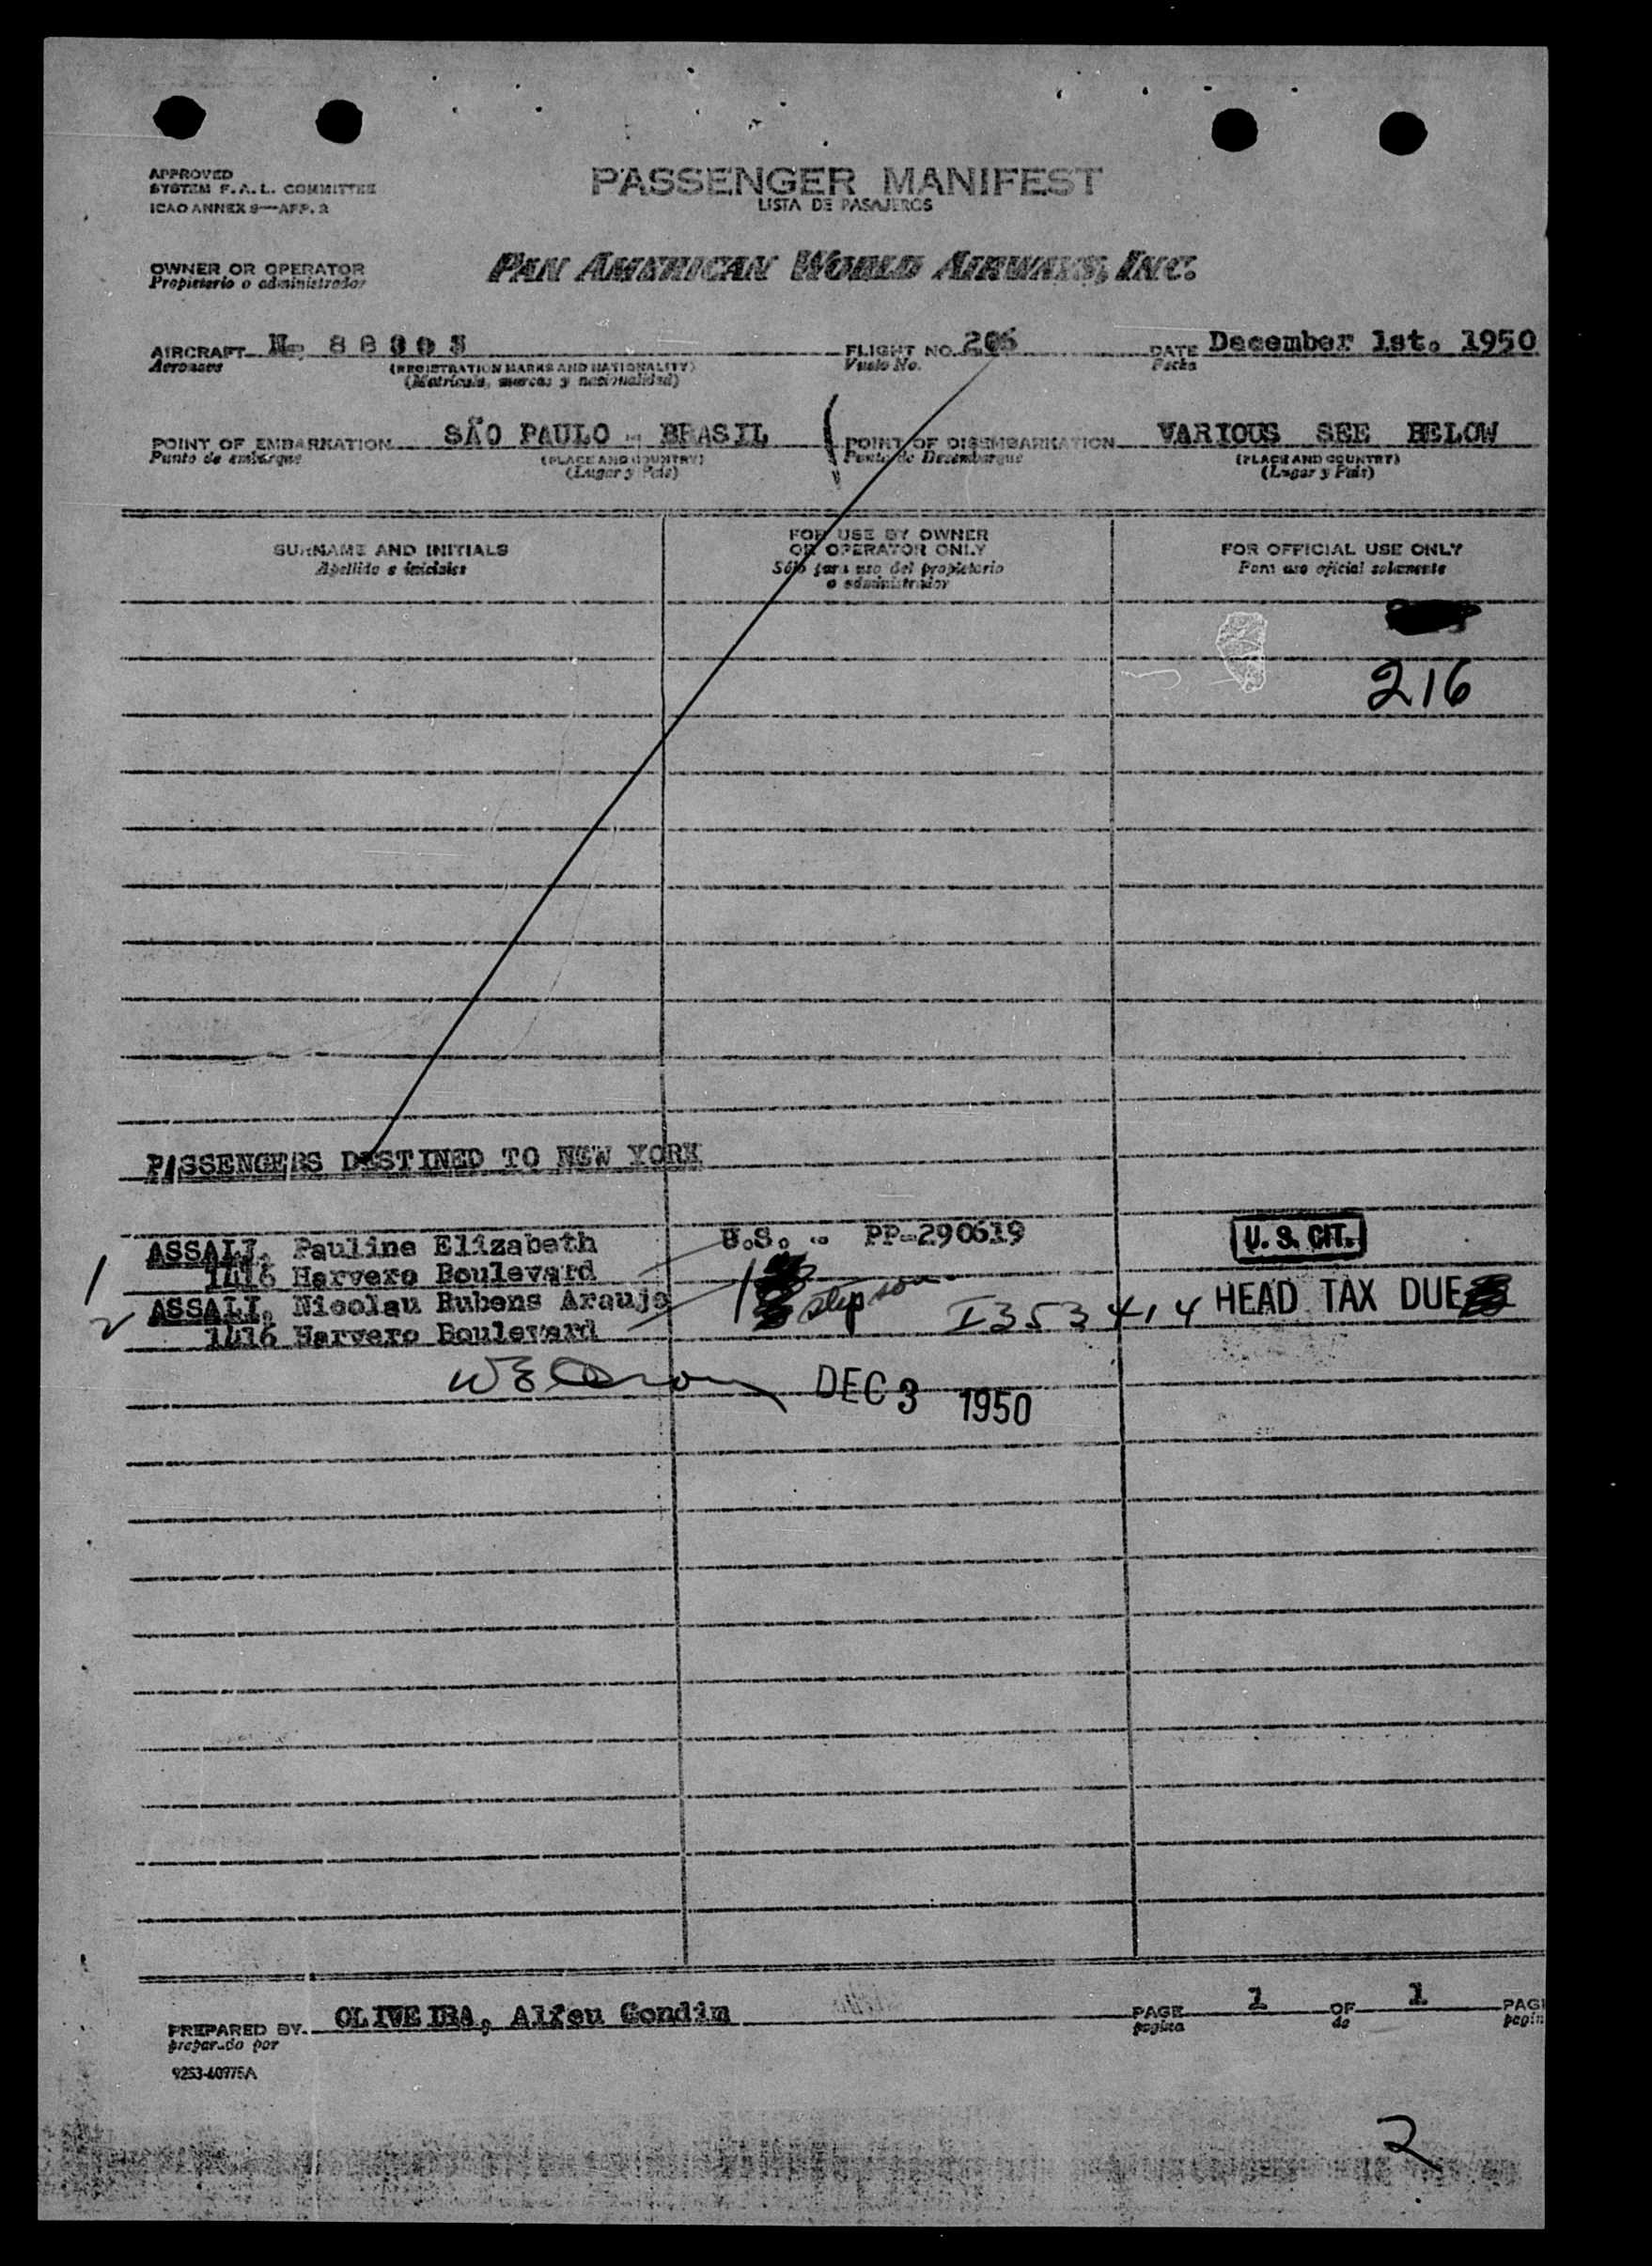 APPROVED
SYSTEM F.A.L. COMMITTEE
ICAO ANNEX 9—APP. 2
PASSENGER MANIFEST
LISTA DE PASAJEROS
OWNER OR OPERATOR
Propietario o administrador
PAN AMERICAN WORLD AIRWAYS, INC.
AIRCRAFT
Aeronave
(REGISTRATION MARKS AND NATIONALITY)
(Matrícula, marcas y nacionalidad)
FLIGHT NO. 206
Vuelo No.
DATE December 1st. 1950
Fecha
POINT OF EMBARKATION SÃO PAULO - BRASIL
Punto de embarque
(PLACE AND COUNTRY)
(Lugar y País)
POINT OF DISEMBARKATION VARIOUS SEE BELOW
Punto de Desembarque
(PLACE AND COUNTRY)
(Lugar y País)
SURNAME AND INITIALS
Apellido e iniciales
FOR USE BY OWNER
OR OPERATOR ONLY
Sólo para uso del propietario
o administrador
FOR OFFICIAL USE ONLY
Para uso oficial solamente
216
PASSENGERS DESTINED TO NEW YORK
1 ASSALI, Pauline Elizabeth U.S. - PP-290619 U. S. CIT.
1416 Harvero Boulevard
2 ASSALI, Nicolau Rubens Araujo step son I353414 HEAD TAX DUE
1416 Harvero Boulevard
DEC 3 1950
PREPARED BY OLIVEIRA, Alfeu Gondim
preparado por
PAGE 1 OF 1 PAG
pagina de pagin
9253-40975A
2